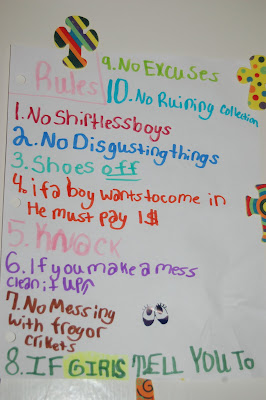 Rules
9. No Excuses
10. No Ruining collection
1. No Shirtless boys
2. No Disgusting things
3. Shoes off
4. if a boy wants to come in
He must pay 1$
5. Knack
6. If you make a mess
clean it up!
7. No Messing
with frog or
crikets
8. IF GIRLS TELL YOU TO